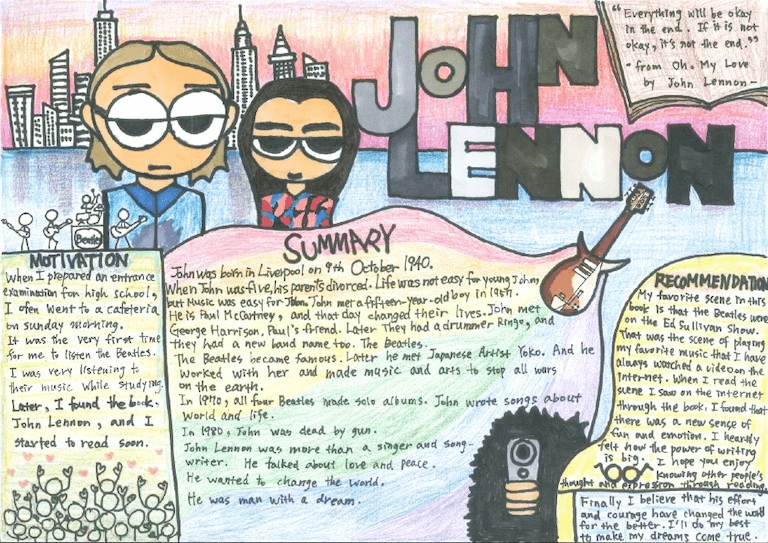 JOHN
LENNON
"Everything will be okay
in the end. If it is not
okay, it's not the end."
- from Oh. My Love
by John Lennon -
Beatles
MOTIVATION
When I prepared an entrance
examination for high school,
I often went to a cafeteria
on sunday morning.
It was the very first time
for me to listen the Beatles.
I was very listening to
their music while studying.
Later, I found the book.
John Lennon, and I
started to read soon.
SUMMARY
John was born in Liverpool on 9th October 1940.
When John was five, his parents divorced. Life was not easy for young John,
but Music was easy for John. John met a fifteen-year-old boy in 1957.
He is Paul McCartney, and that day changed their lives. John met
George Harrison, Paul's friend. Later They had a drummer Ringo, and
they had a new band name too. The Beatles.
The Beatles became famous. Later he met Japanese Artist Yoko. And he
worked with her and made music and arts to stop all wars
on the earth.
In 1970, all four Beatles made solo albums. John wrote songs about
world and life.
In 1980, John was dead by gun.
John Lennon was more than a singer and song-
writer. He talked about love and peace.
He wanted to change the world.
He was man with a dream.
RECOMMENDATION
My favorite scene in this
book is that the Beatles were
on the Ed Sullivan Show.
That was the scene of playing
my favorite music that I have
always watched a video on the
internet. When I read the
scene I saw on the internet
through the book, I found that
there was a new sense of
fun and emotion. I heartily
felt how the power of writing
is big. I hope you enjoy
knowing other people's
thought and expression through reading.
Finally I believe that his effort
and courage have changed the world
for the better. I'll do my best
to make my dreams come true.